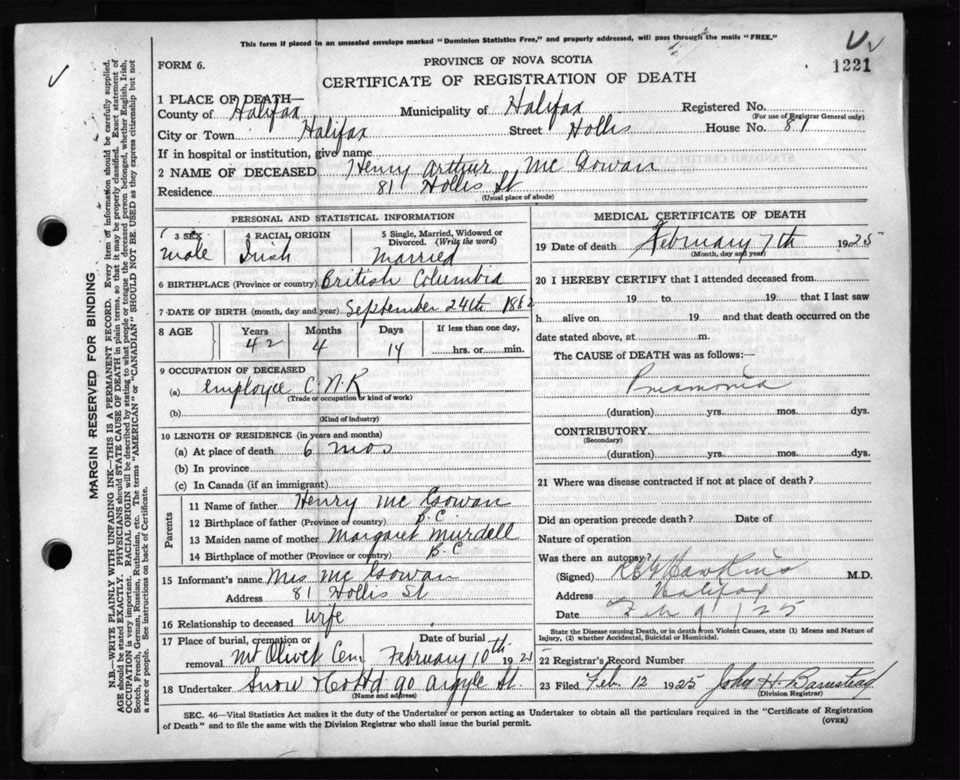 This form if placed in an unsealed envelope marked "Dominion Statistics Free," and properly addressed, will pass through the mails "FREE."
FORM 6.
PROVINCE OF NOVA SCOTIA
1221
CERTIFICATE OF REGISTRATION OF DEATH
1 PLACE OF DEATH—
County of Halifax Municipality of Halifax Registered No.
(For use of Registrar General only)
City or Town Halifax Street Hollis House No. 81
If in hospital or institution, give name
2 NAME OF DECEASED Henry Arthur Mc Gowan
Residence 81 Hollis St
(Usual place of abode)
PERSONAL AND STATISTICAL INFORMATION
3 SEX male
4 RACIAL ORIGIN Irish
5 Single, Married, Widowed or Divorced. (Write the word) Married
6 BIRTHPLACE (Province or country) British Columbia
7 DATE OF BIRTH (month, day and year) September 24th 1882
8 AGE Years 42 Months 4 Days 14 If less than one day, hrs. or min.
9 OCCUPATION OF DECEASED
(a) employee C.N.R
(Trade or occupation or kind of work)
(b)
(Kind of industry)
10 LENGTH OF RESIDENCE (in years and months)
(a) At place of death 6 mos
(b) In province
(c) In Canada (if an immigrant)
Parents
11 Name of father Henry Mc Gowan
12 Birthplace of father (Province or country) B.C.
13 Maiden name of mother Margaret Murdell
14 Birthplace of mother (Province or country) B.C
15 Informant's name Mrs Mc Gowan
Address 81 Hollis St
16 Relationship to deceased Wife
17 Place of burial, cremation or removal Mt Olivet Cem Date of burial February 10th 1925
18 Undertaker Snow & Co Ltd 90 Argyle St.
(Name and address)
MEDICAL CERTIFICATE OF DEATH
19 Date of death February 7th 1925
(Month, day and year)
20 I HEREBY CERTIFY that I attended deceased from
19 to 19 that I last saw
h alive on 19 and that death occurred on the
date stated above, at m.
The CAUSE of DEATH was as follows:
Pneumonia
(duration) yrs. mos. dys.
CONTRIBUTORY
(Secondary)
(duration) yrs. mos. dys.
21 Where was disease contracted if not at place of death?
Did an operation precede death? Date of
Nature of operation
Was there an autopsy?
(Signed) Hawkins M.D.
Address Halifax
Date Feb 9 / 25
State the Disease causing Death, or in death from Violent Causes, state (1) Means and Nature of Injury, (2) whether Accidental, Suicidal or Homicidal.
22 Registrar's Record Number
23 Filed Feb. 12 1925 John H. Barnstead
(Division Registrar)
SEC. 46—Vital Statistics Act makes it the duty of the Undertaker or person acting as Undertaker to obtain all the particulars required in the "Certificate of Registration of Death" and to file the same with the Division Registrar who shall issue the burial permit.
(OVER)
MARGIN RESERVED FOR BINDING
N.B.—WRITE PLAINLY WITH UNFADING INK—THIS IS A PERMANENT RECORD. Every item of information should be carefully supplied.
AGE should be stated EXACTLY. PHYSICIANS should STATE CAUSE OF DEATH in plain terms, so that it may be properly classified. Exact statement of
OCCUPATION is very important. RACIAL ORIGIN will be described by stating to what people or tongue the deceased person belonged, whether English, Irish,
Scotch, French, German, Russian, Ruthenian, etc. The terms "AMERICAN" or "CANADIAN" SHOULD NOT BE USED as they express citizenship but not
a race or people. See instructions on back of Certificate.